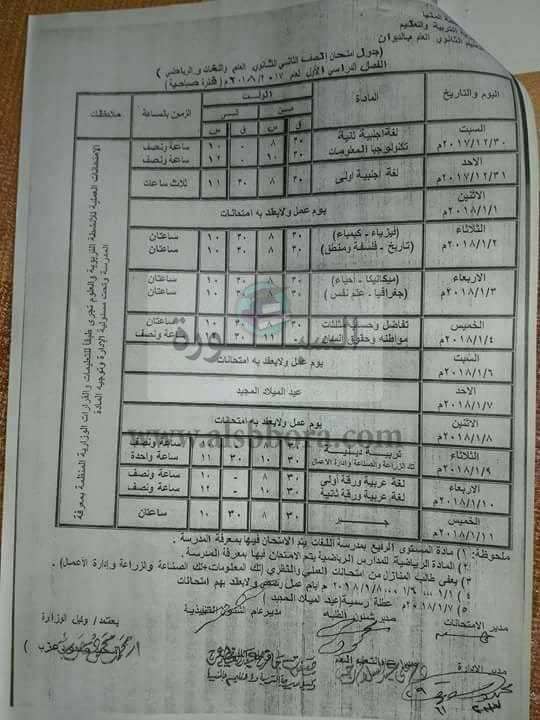 التربية والتعليم
الثانوي العام بالديوان
(جدول امتحان الصف الثاني الثانوي العام واللغات والرياضي)
الفصل الدراسي الأول لعام ٢٠١٧ / ٢٠١٨م ( فترة صباحية )
اليوم والتاريخ المادة الوقت الزمن بالساعة ملاحظات
من
ق س ق س
السبت ٢٠١٧/١٢/٣٠م لغة اجنبية ثانية ٣٠ ٨ ٠ ١٠ ساعة ونصف
تكنولوجيا المعلومات ٣٠ ١٠ ٠ ١٢ ساعة ونصف
الاحد ٢٠١٧/١٢/٣١م لغة أجنبية اولى ٣٠ ٨ ٣٠ ١١ ثلاث ساعات
الاثنين ٢٠١٨/١/١م يوم عمل ولايعقد به امتحانات
الثلاثاء ٢٠١٨/١/٢م (فيزياء - كيمياء) ٣٠ ٨ ٣٠ ١٠ ساعتان
(تاريخ - فلسفة ومنطق) ٣٠ ٨ ٣٠ ١٠ ساعتان
الاربعاء ٢٠١٨/١/٣م (ميكانيكا - أحياء) ٣٠ ٨ ٣٠ ١٠ ساعتان
(جغرافيا - علم نفس) ٣٠ ٨ ٣٠ ١٠ ساعتان
الخميس ٢٠١٨/١/٤م تفاضل وحساب المثلثات ٣٠ ١٠ ساعتان
مواطنة وحقوق ١١ ساعة ونصف
السبت ٢٠١٨/١/٦م يوم عمل ولايعقد به امتحانات
الاحد ٢٠١٨/١/٧م عيد الميلاد المجيد
الاثنين ٢٠١٨/١/٨م يوم عمل ولايعقد به امتحانات
الثلاثاء ٢٠١٨/١/٩م تربية دينية ٣٠ ٨ ١٠ ساعة ونصف
تك الزراعة والصناعة وإدارة الاعمال ٣٠ ١٠ ٣٠ ١١ ساعة واحدة
الاربعاء ٢٠١٨/١/١٠م لغة عربية ورقة أولى ٣٠ ٨ - ١٠ ساعة ونصف
لغة عربية ورقة ثانية ٣٠ ١٠ - ١٢ ساعة ونصف
الخميس ٢٠١٨/١/١١م جبر ٣٠ ٨ ٣٠ ١٠ ساعتان
الامتحانات العملية للأنشطة التربوية والعلوم تجرى طبقا للتعليمات والقرارات الوزارية المنظمة بمعرفة
المدرسة وتحت مسئولية الإدارة وتوجيه المادة
السبورة
www.alsbbora.com
ملحوظة: ١) مادة المستوى الرفيع بمدرسة اللغات يتم الامتحان فيها بمعرفة المدرسة.
٢) المادة الرياضية للمدارس الرياضية يتم الامتحان فيها بمعرفة المدرسة.
٣) يعفى طالب المنازل من امتحانات العملي والنظري (تك المعلومات+تك الصناعة والزراعة وإدارة الأعمال).
٤) ١/١ ، ١/٦ ، ٢٠١٨/١/٨م أيام عمل ولايعقد بهم امتحانات
٥) ٢٠١٨/١/٧م عطلة رسمية(عيد الميلاد المجيد)
مدير الامتحانات مدير شئون الطلبة مدير عام الشئون التنفيذية يعتمد / وكيل الوزارة
مدير الإدارة